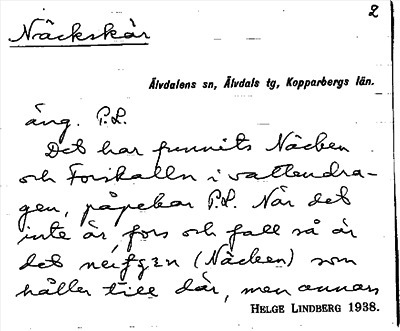 2
Näckskär
Älvdalens sn, Älvdals tg, Kopparbergs län.
äng. P.L.
Det har funnits Näcken
och Forskalln i vattendra-
gen, påpekar P.L. När det
inte är fors och fall så är
det (Näcken) som
håller till där, men annars
HELGE LINDBERG 1938.